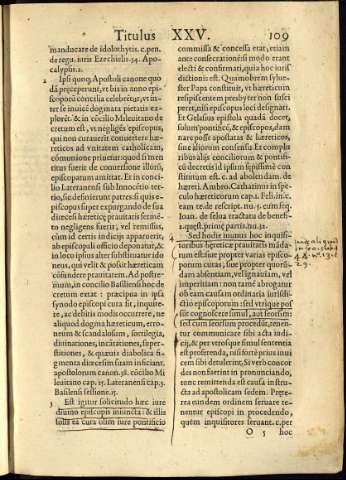 Titulus XXV. 109
manducare de idolothytis. c. pen.
de regu. iuris Ezechielis. 34. Apo-
calypsis. 2.
2 Ipsi quoq; Apostoli canone quo
dā præceperunt, vt bis in anno epi-
scoporū concilia celebrēt̃, vt in-
ter se inuicē dogmata pietatis ex-
plorēt. & in cōcilio Mileuitano de
cretum est, vt negligēs episcopus,
qui non curauerit conuertere hære-
ticos ad vnitatem catholicam,
communione priuetur: quod si men
titus fuerit de conuersione illorū,
episcopatum amittat. Et in conci-
lio Lateranensi sub Innocētio ter-
tio, sic definitum
episcopus super expurgando de sua
diœcesi hæreticę prauitatis fermē-
to negligens fuerit, vel remissus,
cùm id certis indicijs apparuerit,
ab episcopali officio deponatur, &
in loco ipsius alter substituatur ido
neus, qui velit & possit hæreticam
cōfundere prauitatem. Ad postre-
mum, in concilio Basiliensi hoc de
cretum extat: præcipua in ipsa
synodo episcopi cura sit, inquire-
re, ac debitis modis occurrere, ne
aliquod dogma hæreticum, erro-
neum & scandalosum, sortilegia,
diuinationes, incātationes, super-
stitiones, & quæuis diabolica fi
gmenta diœcesim suam inficiant.
apostolorum canon. 38. cōcilio Mi
leuitano cap. 25. Lateranensi cap. 3.
Basilensi sessione. 15.
3 Est igitur solicitudo hæc iure
diuino episcopis iniuncta: & illis
sola ea cura olim iure pontificio
commissa & concessa erat, etiam
ante consecrationē si modo erant
electi & confirmati, quia hoc iuris
dictionis est. Quamobrem sylue-
ster Papa constituit, vt hæreticum
resipiscentem presbyter non susci
peret, nisi episcopus loci designet.
Et Gelasius epistola quadā docet,
solum pontificē, & episcopos, dam
nare posse apostatas & hæreticos,
sine illorum consensu. Et complu
ribus alijs conciliorum & pontifi-
cū decretis id ipsum sępissimè con
stitutum est. c. ad abolendam. de
hæreti. Ambro. Catharinus in specu
lo hæreticorum cap. 1. Felin. in. c.
eam te. de rescript. nu. 3.
Ioann. de selua tractatu de benefi-
. 2. quæst. prim. partis. nu. 31.
4 Sed hodie mutuo hoc inquisi-
toribus hęreticæ prauitatis māda-
tum est: siue propter varias episco
porum curas, siue propter quorun
dam absentiam, vel ignauiam, vel
imperitiam: non tamē abrogant
ob eam causam ordinaria iurisdi-
ctio episcoporum: sed vtrique pos
sūt cognoscere simul, aut seorsim:
sed cum seorsum procedūt, tenen-
tur communicare sibi acta iudi-
cij, & per vtrosque simul sententia
est proferenda, nisi forte prius inui
cem sibi detulerint. Si verò concor
des non fuerint in pronunciando,
tunc remittenda est causa instru-
cta ad apostolicam sedem. Præte-
rea quem ordinem seruare te-
nentur episcopi in procedendo,
quem inquisitores seruant. c. per
O 5 hoc